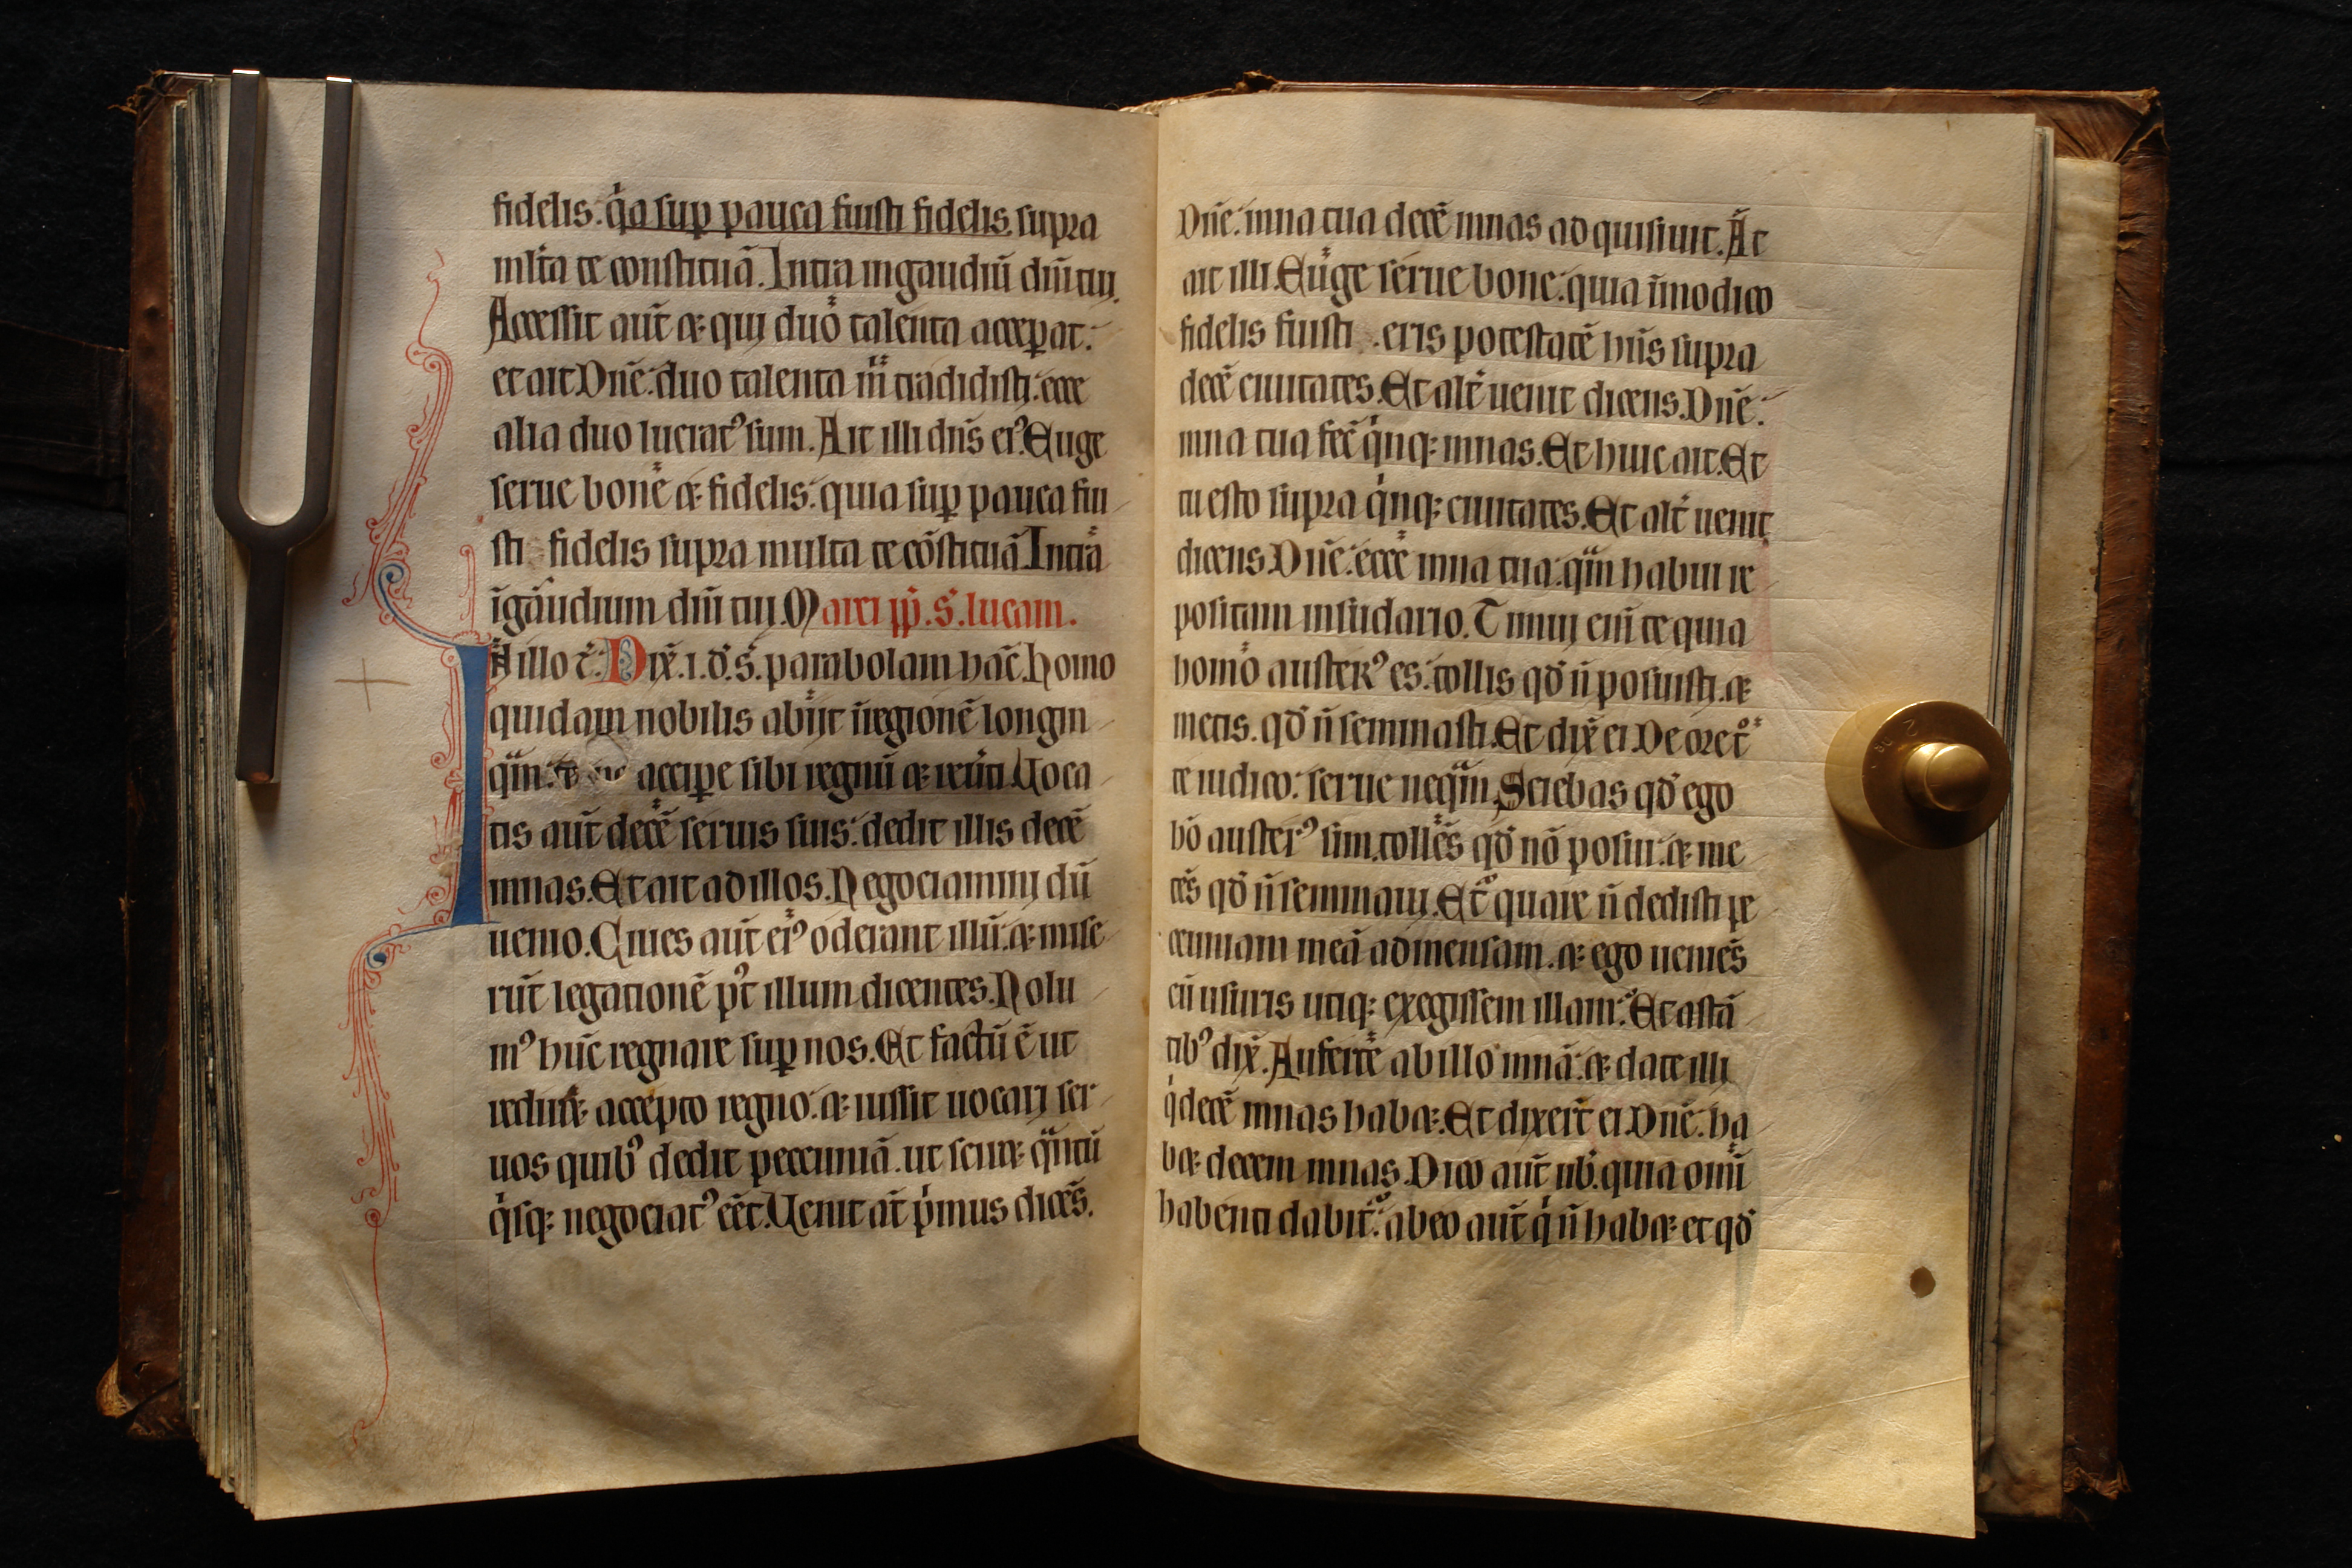 fidelis. q̇a suꝑ pauca fuisti fidelis. supra
ml̃ta te constituã. Intra in gaudiũ dñi tui.
Accessit aũt ⁊ qui duo talenta acceꝑat.
et ait. Dñe. duo talenta m̃ tradidisti. ecce
alia duo lucratꝰ sum. Ait illi dñs eiꝰ. Euge
serue bone ⁊ fidelis. quia suꝑ pauca fui
sti fidelis supra multa te cõstituã Intra
ĩ gaudium dñi tui. Marci pp̃. S. lucam.
In illo t̃. Dix̃. i. d̃. s̃. parabolam hãc. homo
quidam nobilis abijt ĩ regionẽ longin
qũm. acciꝑe sibi regnũ ⁊ reũti. Uoca
tis aũt decẽ seruis suis. dedit illis decẽ
mnas. Et ait ad illos. Negociamini dũ
uenio. Ciues aũt eiꝰ oderant illũ. ⁊ mise
rũt legationẽ pꝰt illum dicentes. Nolu
mꝰ hũc regnare suꝑ nos. Et factũ ẽ ut
redir⁊ accepto regno. ⁊ iussit uocari ser
uos quibꝰ dedit pecuniã. ut scir⁊ q̃ntũ
q̇sq; negociatꝰ eẽt. Uenit aũt ṗmus dicẽs.
Dñe. mna tua decẽ mnas adquisiuit. Et
ait illi. Euge serue bone. quia ĩ modico
fidelis fuisti . eris potestatẽ hñs supra
decẽ ciuitates. Et alt̃ uenit dicens. Dñe.
mna tua fec̃ q̇nq; mnas. Et huic ait. Et
tu esto supra q̇nq; ciuitates. Et alt̃ uenit
dicens. Dñe. ecce mna tua. q̃m habui re
positam in sudario. Timui eñi te quia
homo austerꝰ es. tollis qd̃ ñ posuisti. ⁊
metis. qd̃ ñ seminasti. Et dix̃ ei De ore t°
te iudico. serue neq̃m. Sciebas qd̃ ego
hõ austerꝰ sim. tollẽs qd̃ nõ posui. ⁊ me
tẽs qd̃ ñ seminaui. Et quare ñ dedisti pe
cuniam meã ad mensam. ⁊ ego ueniẽs
cũ usuris utiq; exegissem illam. Et astã
tibꝰ dix̃. Auferte ab illo mnã. ⁊ date illi
q̇ decẽ mnas hab⁊. Et dixer̃t ei. Dñe. ha
b⁊ decem mnas. Dico aũt uob̃. quia omĩ
habenti dabit̃. ab eo aũt q̇ ñ hab⁊. et qd̃